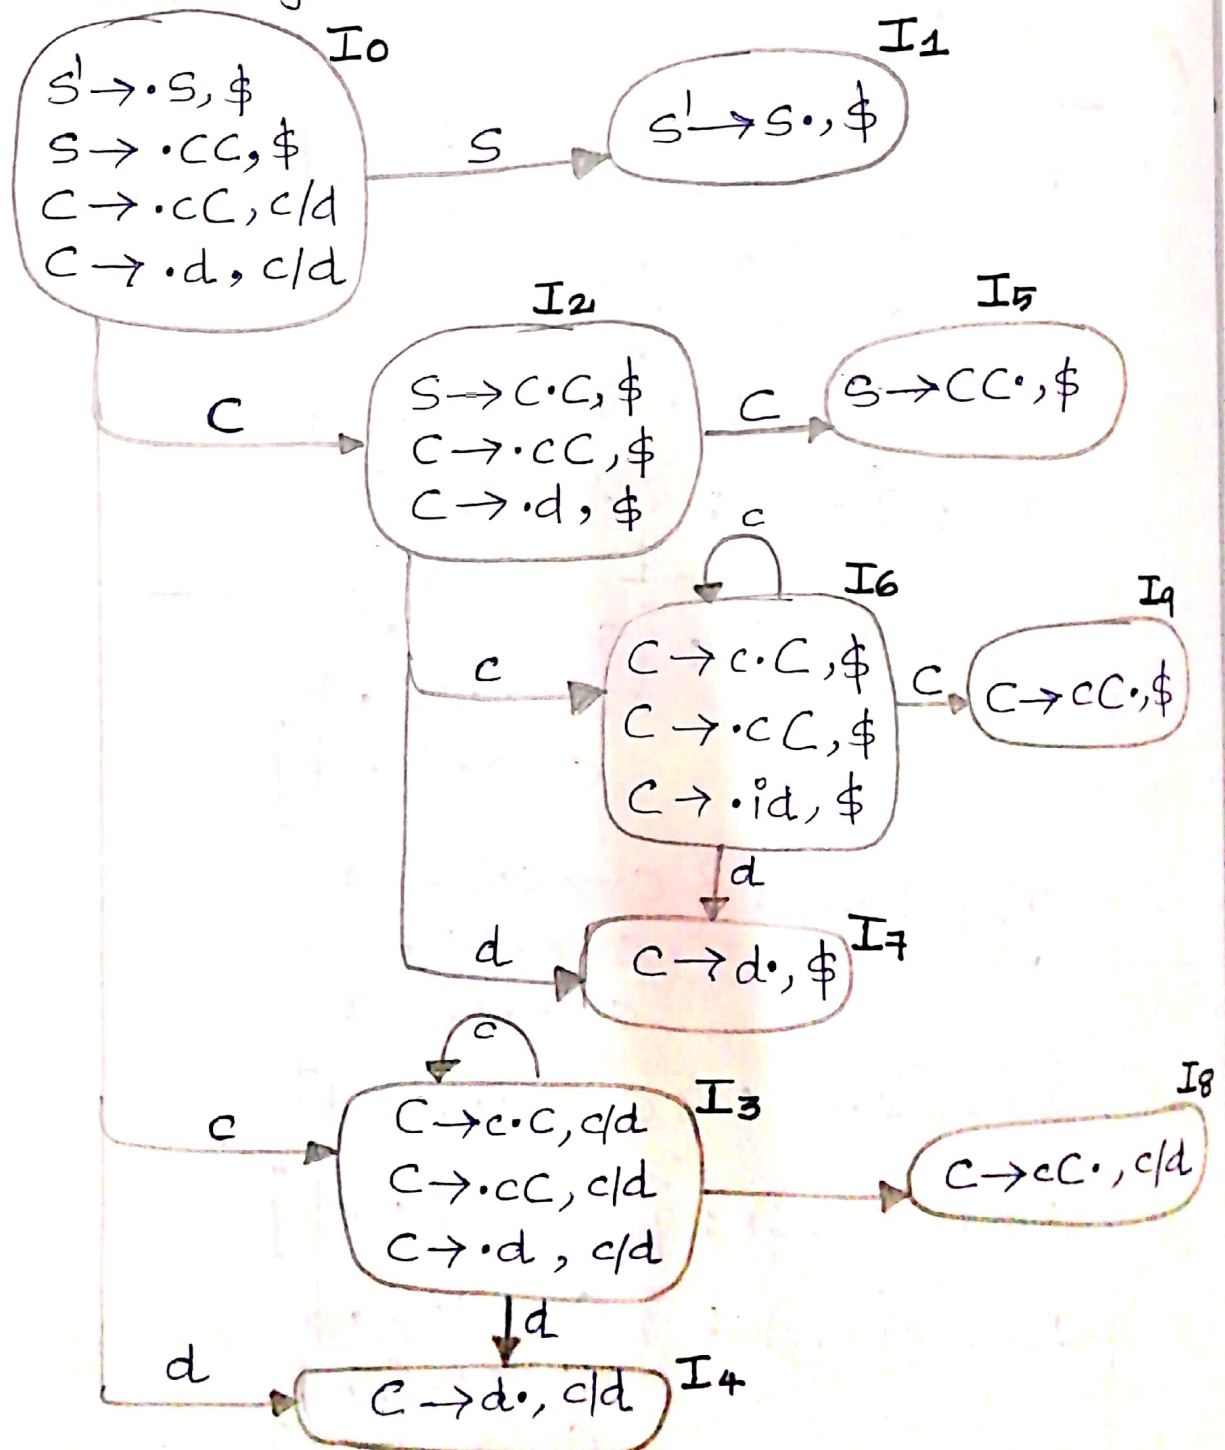 I0
S' → .S, $
S → .CC, $
C → .cC, c/d
C → .d, c/d
S
I1
S' → S., $
C
I2
S → C.C, $
C → .cC, $
C → .d, $
C
I5
S → CC., $
c
c
I6
C → c.C, $
C → .cC, $
C → .id, $
C
I9
C → cC., $
d
d
I7
C → d., $
c
c
I3
C → c.C, c/d
C → .cC, c/d
C → .d, c/d
I8
C → cC., c/d
d
d
I4
C → d., c/d